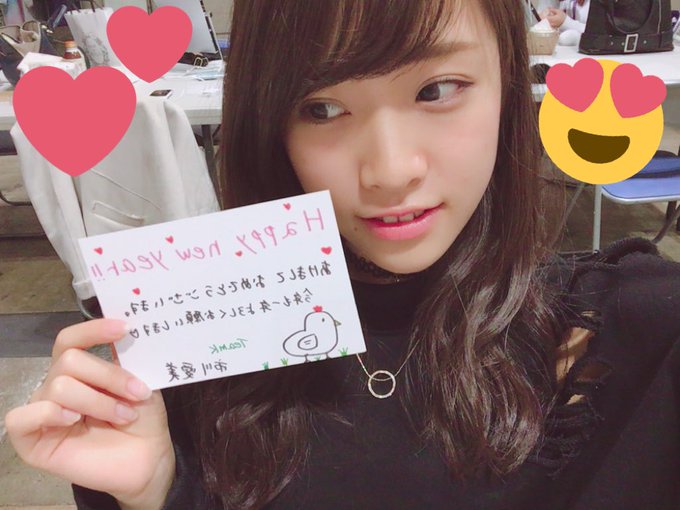 Happy new year!!
あけまして おめでとうございます。
今年も一年よろしくお願いします
Team K
市川愛美